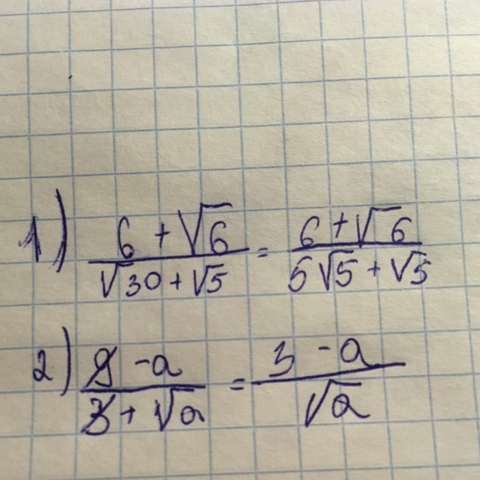 1) (6 + √6)/(√30 + √5) = (6 + √6)/(5√5 + √5)
2) (9 - a)/(3 + √a) = (3 - a)/√a